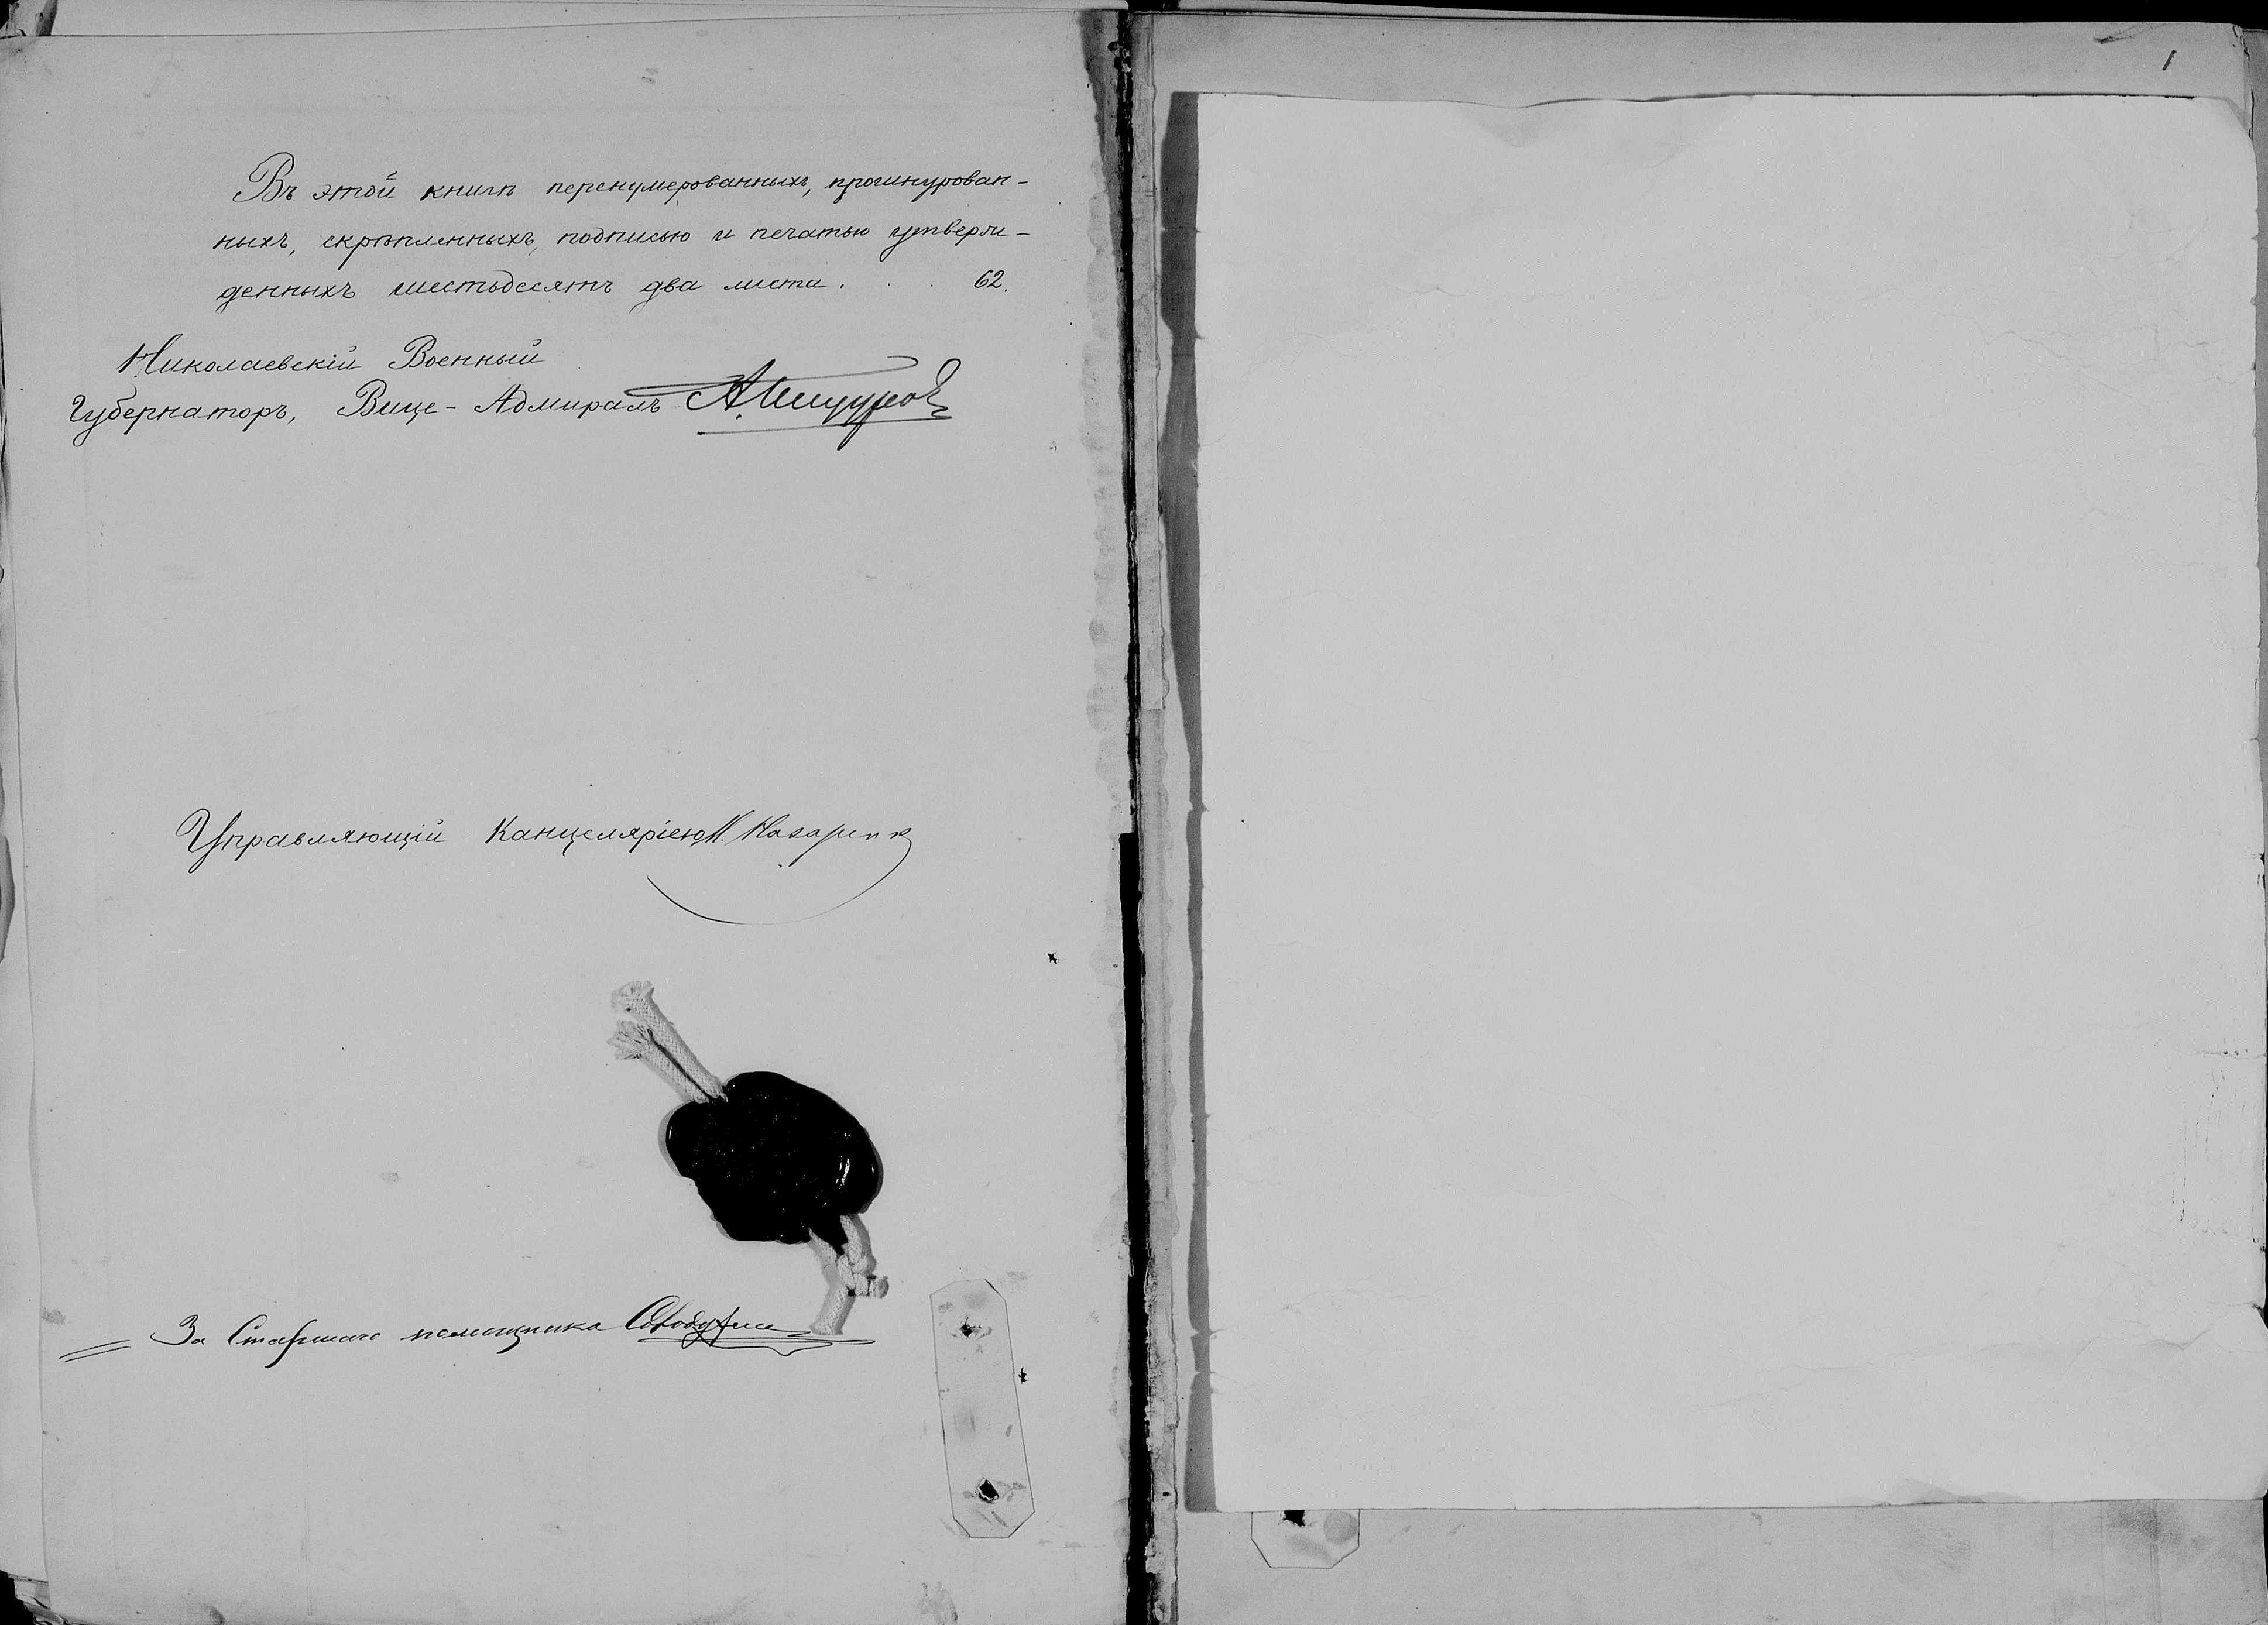 Въ этой книгѣ перенумерованныхъ, прошнурован-
ныхъ, скрѣпленныхъ, подписью и печатью утверж-
денныхъ шестьдесятъ два листа . . . 62.
Николаевскій Военный
Губернаторъ, Вице-Адмиралъ А. Пещуровъ
Управляющій Канцеляріею
За Старшаго помощника
1